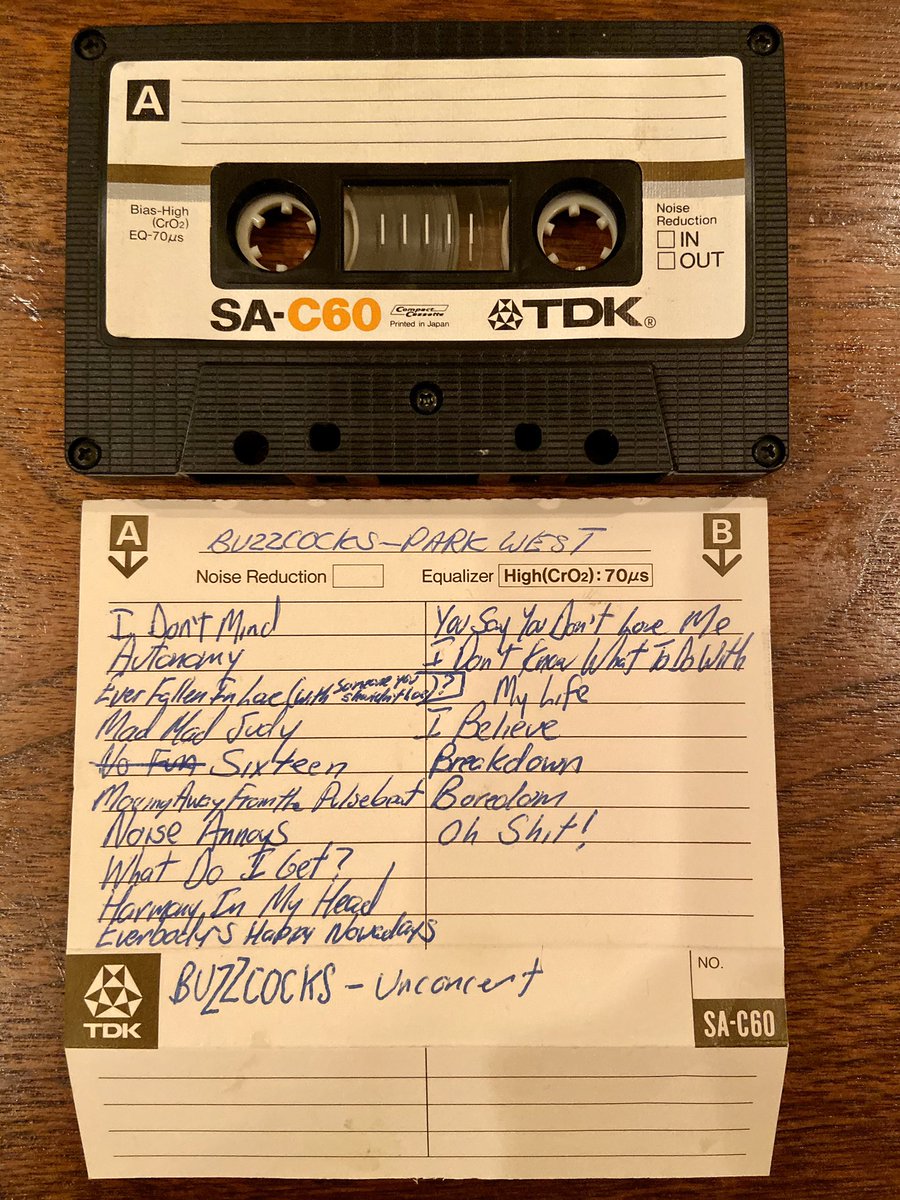 A
Bias-High
(CrO2)
EQ-70µs
Noise
Reduction
IN
OUT
SA-C60
Compact
Cassette
Printed in Japan
TDK®
A
BUZZCOCKS-PARK WEST
B
Noise Reduction
Equalizer High(CrO2):70µs
I Don't Mind
Autonomy
Ever Fallen In Love (with someone you shouldn't have)?
Mad Mad Judy
No Fun Sixteen
Moving Away From the Pulsebeat
Noise Annoys
What Do I Get?
Harmony In My Head
Everbody's Happy Nowadays
You Say You Don't Love Me
I Don't Know What To Do With
My Life
I Believe
Breakdown
Boredom
Oh Shit!
TDK
BUZZCOCKS - Unconcert
NO.
SA-C60